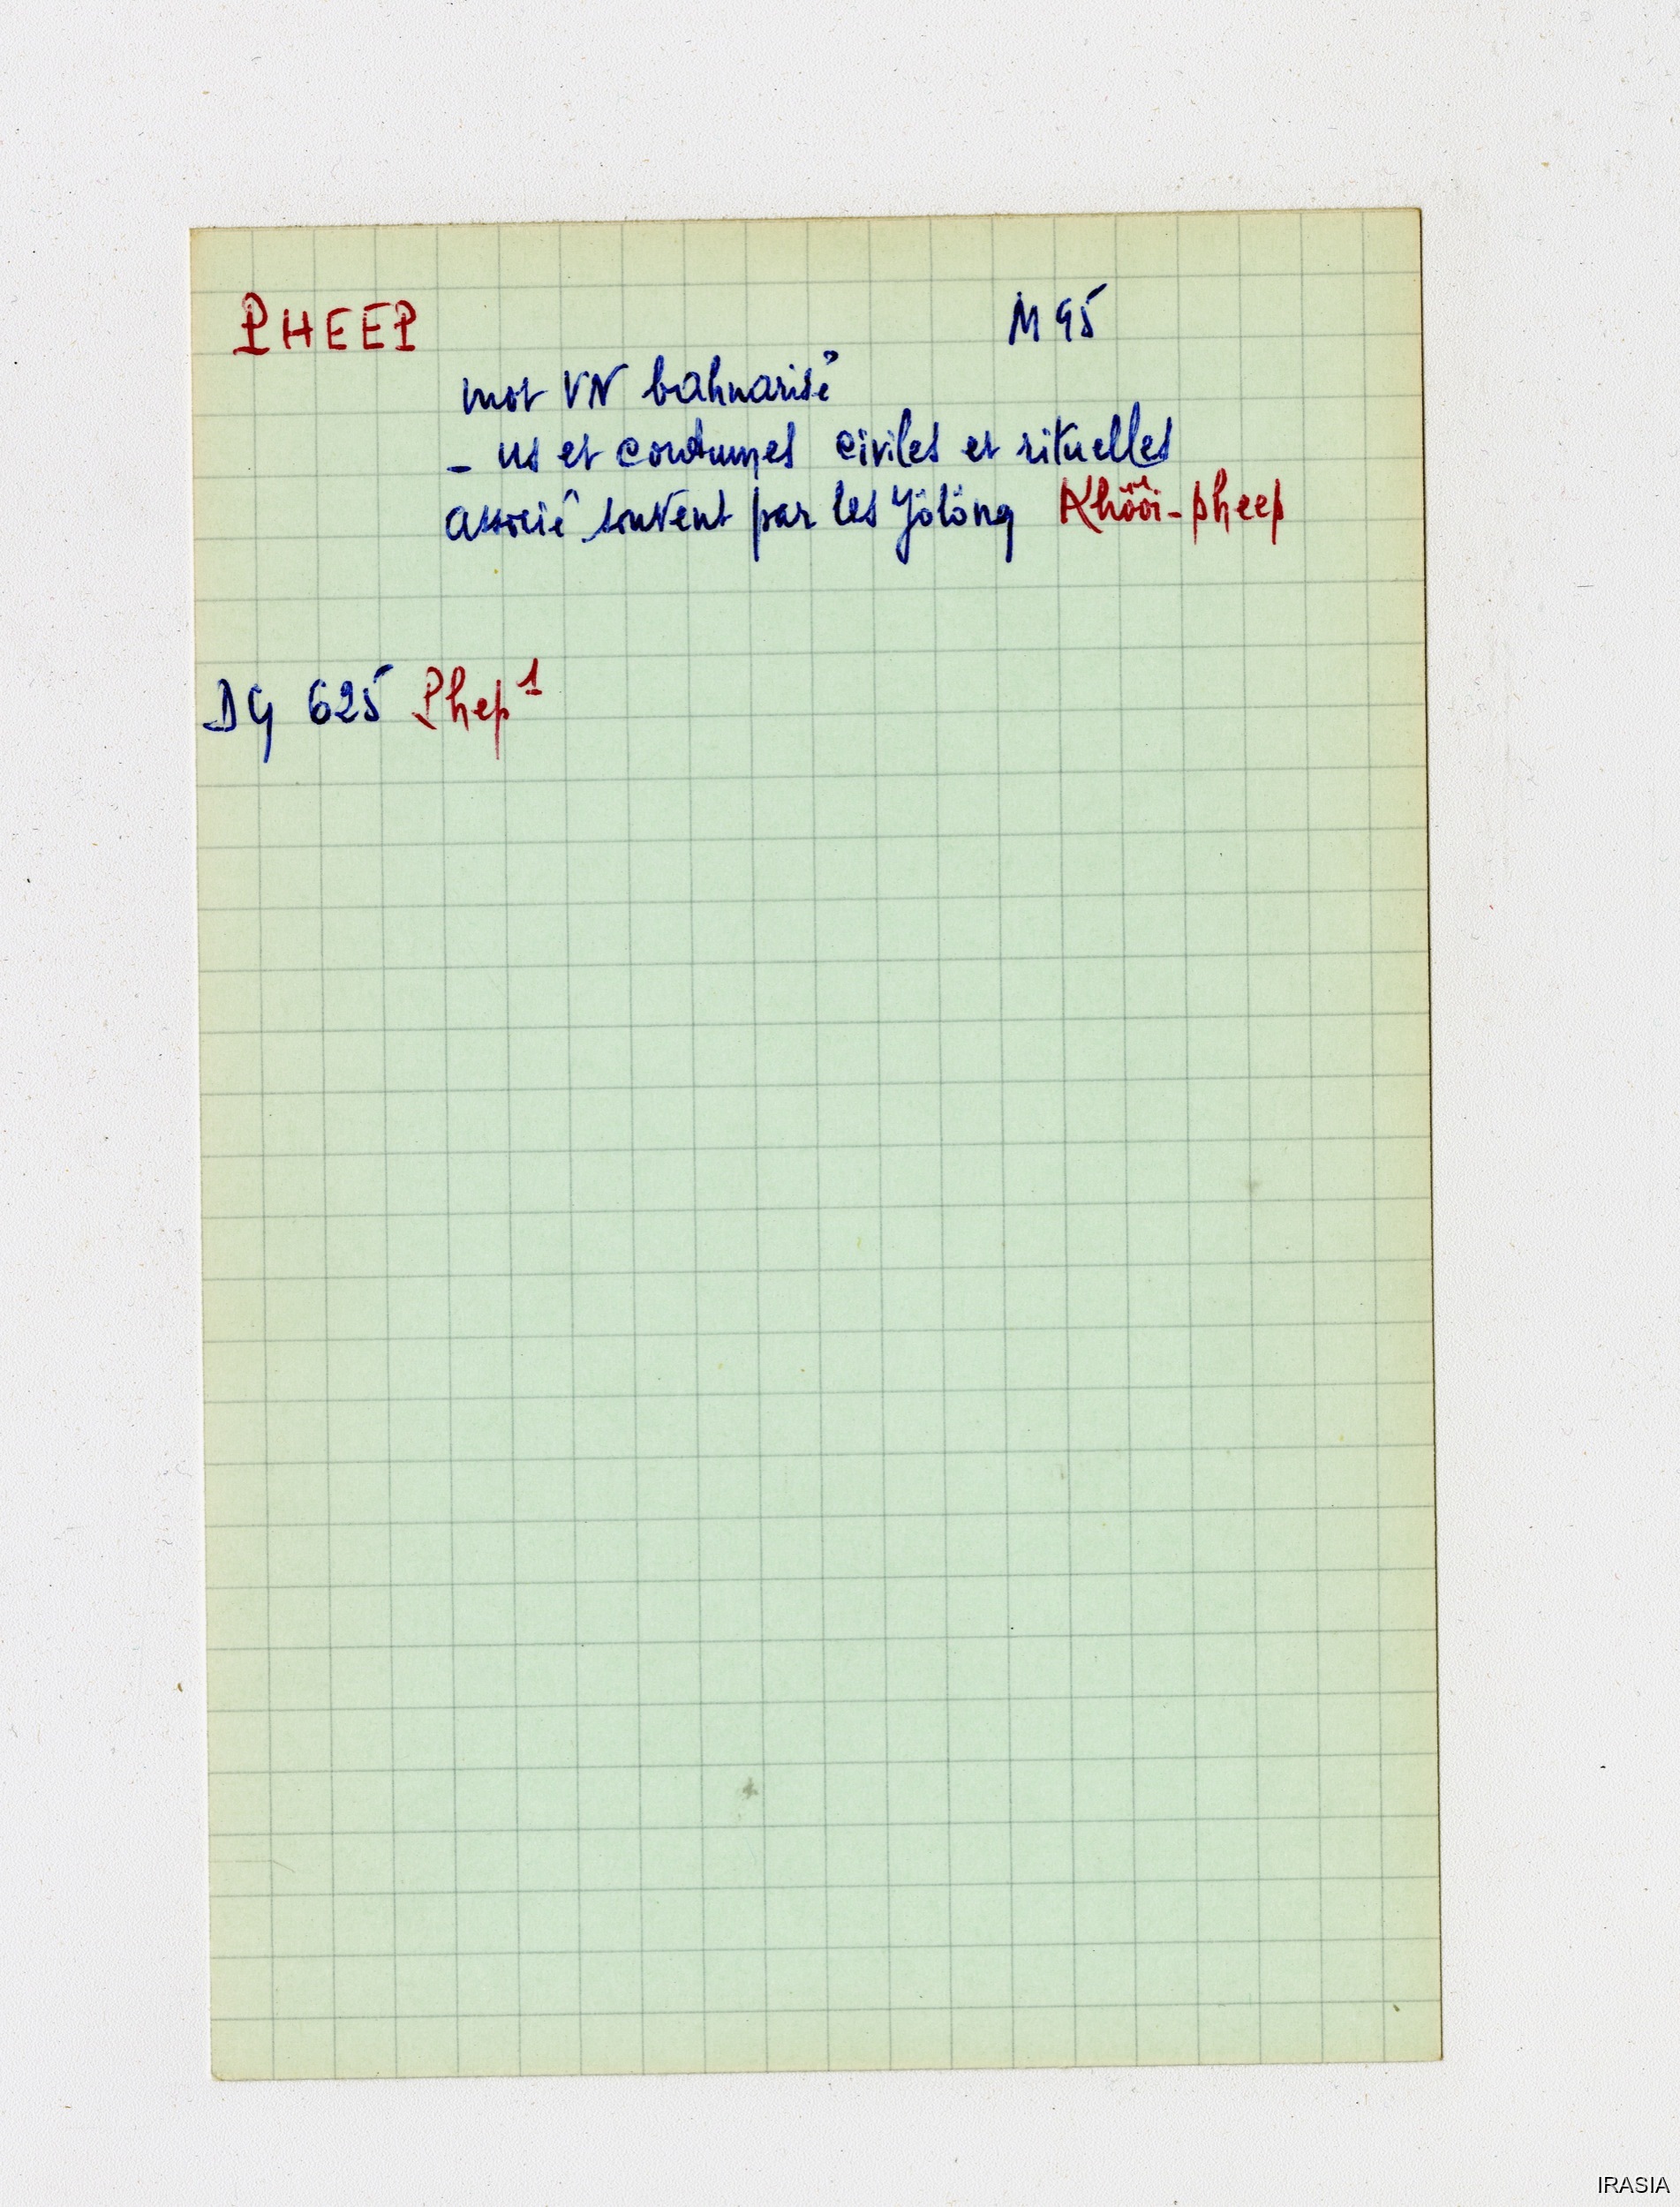 PHEEP M 95
mot VN bahnarisé
- us et coutumes civiles et rituelles
associé souvent par les Jölöng Khööi-pheep
DG 625 Phep¹
IRASIA